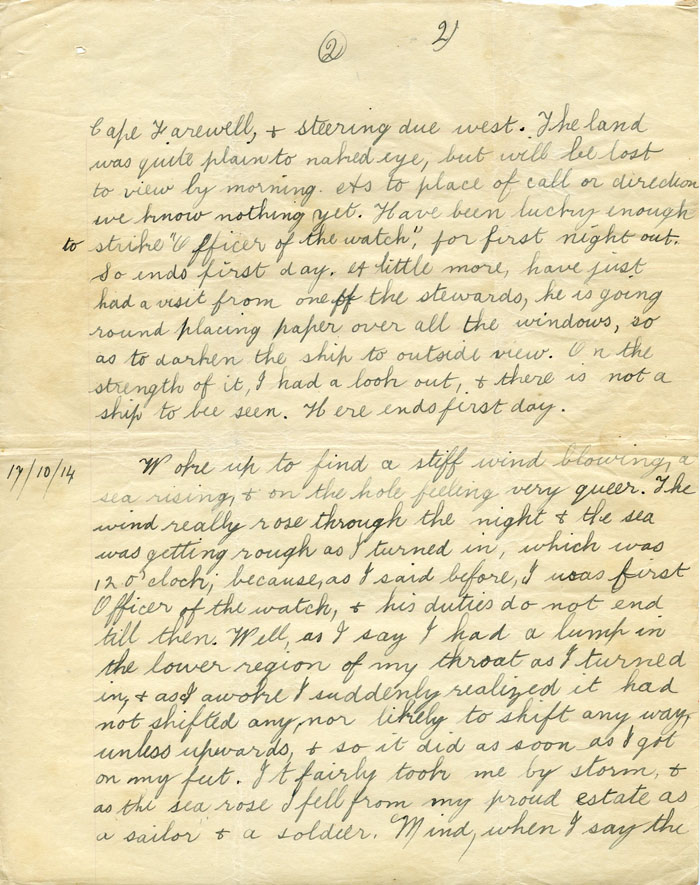 2)
②
Cape Farewell, & steering due west. The land
was quite plain to naked eye, but will be lost
to view by morning. As to place of call or direction
we know nothing yet. Have been lucky enough
to strike "Officer of the watch", for first night out.
So ends first day. A little more, have just
had a visit from one of the stewards, he is going
round placing paper over all the windows, so
as to darken the ship to outside view. On the
strength of it, I had a look out, & there is not a
ship to bee seen. Here ends first day.
17/10/14
Woke up to find a stiff wind blowing, a
sea rising, & on the hole feeling very queer. The
wind really rose through the night & the sea
was getting rough as I turned in, which was
12 o'clock; because, as I said before, I was first
Officer of the watch, & his duties do not end
till then. Well, as I say I had a lump in
the lower region of my throat as I turned
in, & as I awoke I suddenly realized it had
not shifted any, nor likely to shift any way,
unless upwards, & so it did as soon as I got
on my feet. It fairly took me by storm, &
as the sea rose I fell from my proud estate as
a sailor & a soldier. Mind, when I say the